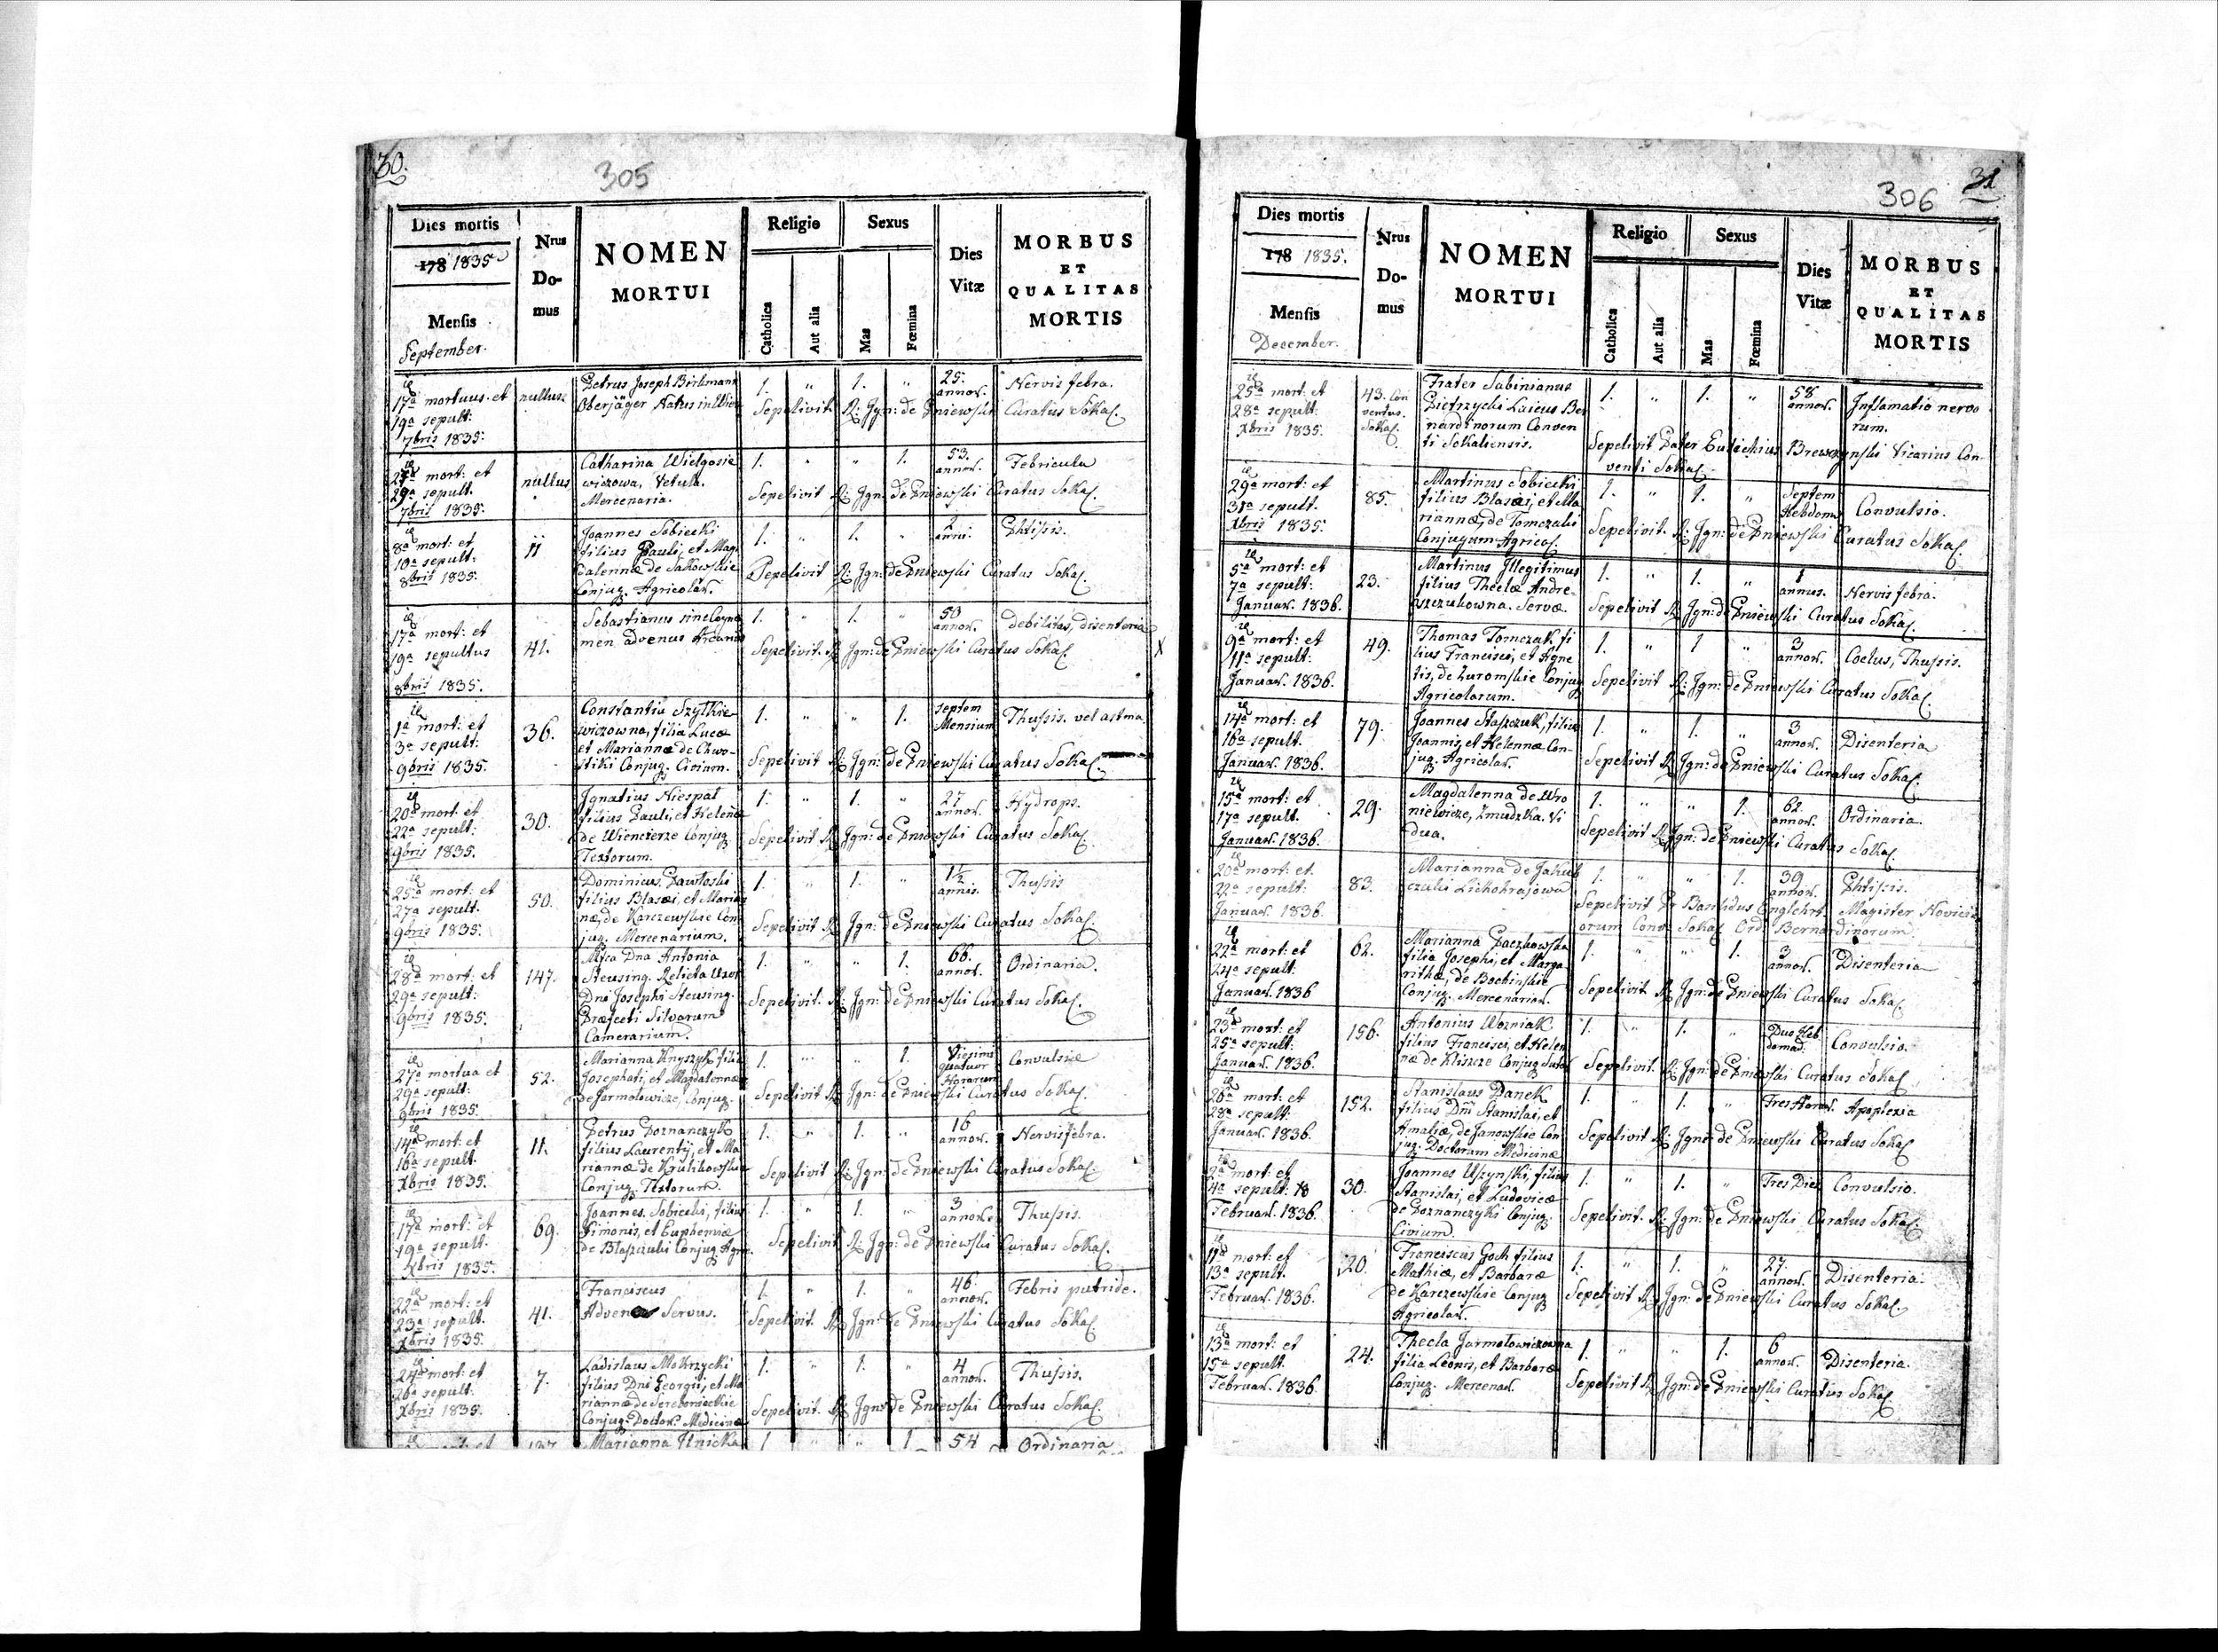 30.
305
Dies mortis
178 1835
Mensis
September.
Nrus
Do-
mus
NOMEN
MORTUI
Religio
Catholica
Aut alia
Sexus
Mas
Fœmina
Dies
Vitæ
MORBUS
ET
QUALITAS
MORTIS
17a mortuus et
19a sepult:
7bris 1835.
nullus
Petrus Joseph Birkmann
Oberjäger Natus in
1. " 1. "
25.
annor.
Nervis febra.
Sepelivit R: Ign: de Pniewski Curatus Sokal.
27a mort: et
29a sepult.
7bris 1835.
nullus
Catharina Wielgosie
wiczowa, Vetula.
Mercenaria.
1. " " 1.
53.
annor.
Febricula
Sepelivit R: Ign: de Pniewski Curatus Sokal.
8a mort: et
10a sepult:
8bris 1835.
11
Joannes Sobiecki
filius Pauli, et Mag
dalennæ de Sakowskie
Conjug. Agricolar.
1. " 1. "
2
anni.
Phtisis.
Sepelivit R: Ign: de Pniewski Curatus Sokal.
17a mort: et
19a sepultus
8bris 1835.
41.
Sebastianus sine Cogno
men advenus
1. " 1. "
50
annor.
debilitas, disenteria
Sepelivit R: Ign: de Pniewski Curatus Sokal.
1a mort: et
3a sepult:
9bris 1835.
36.
Constantia Szytkie
wiczowna, filia Lucæ
et Mariannæ de Chwo-
stiki Conjug. Civium.
1. " " 1.
septem
Mensium
Thussis. vel astma.
Sepelivit R: Ign: de Pniewski Curatus Sokal.
20a mort. et
22a sepult:
9bris 1835.
30.
Ignatius Niespal
filius Pauli, et Helenæ
de Wiencierze Conjug
Textorum.
1. " 1. "
27
annor.
Hydrops.
Sepelivit R: Ign: de Pniewski Curatus Sokal.
25a mort: et
27a sepult.
9bris 1835.
50.
Dominicus Pawloski
filius Blasæi, et Marian
næ, de Karczewskie Con
jug. Mercenarium.
1. " 1. "
1½
annis.
Thussis
Sepelivit R: Ign: de Pniewski Curatus Sokal.
28a mort: et
29a sepult:
9bris 1835.
147.
Mfca Dna Antonia
Steusing. Relicta Uxor
Dni Josephi Steusing.
Præfecti Silvarum
Camerarium.
1. " " 1.
66.
annor.
Ordinaria.
Sepelivit. R: Ign: de Pniewski Curatus Sokal.
27a mortua et
29a sepult:
9bris 1835.
52.
Marianna Knyszyk filia
Josephati, et Magdalennæ
de Jarmolowicze, Conjug.
1. " " 1.
Viginti
quatuor
Horarum
Convulsiæ
Sepelivit R: Ign: de Pniewski Curatus Sokal.
14a mort: et
16a sepult.
Xbris 1835.
11.
Petrus Poznanczyk
filius Laurentÿ, et Ma
riannæ de Krulikowskie
Conjug. Textorum.
1. " 1. "
16
annor.
Nervis febra.
Sepelivit R: Ign: de Pniewski Curatus Sokal.
17a mort: et
19a sepult.
Xbris 1835.
69.
Joannes Sobiecki, filius
Simonis, et Euphemiæ
de Blaszczuki Conjug. Agri.
1. " 1. "
3
annor.
Thussis.
Sepelivit R: Ign: de Pniewski Curatus Sokal.
22a mort: et
23a sepult.
Xbris 1835.
41.
Franciscus
Advena Servus.
1. " 1. "
46
annor.
Febris putride.
Sepelivit. R: Ign: de Pniewski Curatus Sokal.
24a mort: et
26a sepult:
Xbris 1835.
7.
Ladislaus Mokrzycki
filius Dni Georgii, et Ma
riannæ de Serebonieckie
Conjug. Doctor. Medicinæ
1. " 1. "
4
annor.
Thussis.
Sepelivit. R: Ign: de Pniewski Curatus Sokal.
137
Marianna Ilnicka
1 " " 1
54
Ordinaria
306
31
Dies mortis
178 1835.
Mensis
December.
Nrus
Do-
mus
NOMEN
MORTUI
Religio
Catholica
Aut alia
Sexus
Mas
Fœmina
Dies
Vitæ
MORBUS
ET
QUALITAS
MORTIS
25a mort: et
28a sepult:
Xbris 1835.
43. Con
ventus.
Sokal.
Frater Sabinianus
Pietrzycki Laicus Ber
nardinorum Conven
ti Sokaliensis.
1. " 1. "
58
annor.
Inflamatio nervo
rum.
Sepelivit Pater Eutichius Vicarius Con-
venti Sokal.
29a mort: et
31a sepult.
Xbris 1835.
85.
Martinus Sobiecki
filius Blasæi, et Ma
riannæ, de Tomczaki
Conjugum Agricol.
1. " 1. "
Septem
Hebdoma
Convulsio.
Sepelivit. R: Ign: de Pniewski Curatus Sokal.
5a mort: et
7a sepult:
Januar. 1836.
23.
Martinus Illegitimus
filius Theclæ Andre-
aszczukowna. Servæ.
1. " 1. "
1
annus.
Nervis febra.
Sepelivit R: Ign: de Pniewski Curatus Sokal.
9a mort: et
11a sepult:
Januar. 1836.
49.
Thomas Tomczak fi
lius Francisci, et Agne
tis, de Zuromskie Conjug
Agricolarum.
1. " 1 "
3
annor.
Coctus, Thussis.
Sepelivit R: Ign: de Pniewski Curatus Sokal.
14a mort: et
16a sepult.
Januar. 1836.
79.
Joannes Staszczuk, filius
Joannis, et Helennæ Con-
jug. Agricolar.
1. " 1. "
3
annor.
Disenteria
Sepelivit R: Ign: de Pniewski Curatus Sokal.
15a mort: et
17a sepult.
Januar. 1836.
29.
Magdalenna de Wro
niewicze, Zmudzka. Vi
dua.
1. " " 1.
62.
annor.
Ordinaria.
Sepelivit R: Ign: de Pniewski Curatus Sokal.
20a mort: et.
22a sepult:
Januar. 1836.
83.
Marianna de Jakub
czuki Lichohrajowa
1. " " 1.
39
annor.
Phtissis.
Sepelivit Pr Basilidus Englehrt. Magister Novici
orum Conv: Sokal Ord: Bernardinorum.
22a mort: et
24a sepult:
Januar. 1836
62.
Marianna Paczkowska
filia Josephi, et Marga
rithæ, de Bochinskie
Conjug. Mercenarior.
1. " " 1.
3
annor.
Disenteria
Sepelivit R: Ign: de Pniewski Curatus Sokal.
23a mort: et
25a sepult:
Januar. 1836.
156.
Antonius Wozniak.
filius Francisci, et Helen
næ de Kliszcze Conjug Sutor
1. " 1. "
Duo Heb
domad.
Convulsio.
Sepelivit. R: Ign: de Pniewski Curatus Sokal
26a mort: et
28a sepult:
Januar. 1836.
152.
Stanislaus Panek
filius Dni Stanislai, et
Amaliæ, de Janowskie Con
jug. Doctorum Medicinæ
1. " 1. "
Tres Horar.
Apoplexia
Sepelivit R: Ign: de Pniewski Curatus Sokal
2a mort: et
4a sepult: 18
Februar. 1836.
30.
Joannes Uszynski, filius
Stanislai, et Ludovicæ
de Poznanczyki Conjug.
Civium.
1. " 1. "
Tres Dies
Convulsio.
Sepelivit. R: Ign: de Pniewski Curatus Sokal.
11a mort: et
13a sepult.
Februar. 1836.
20.
Franciscus Goch filius
Mathiæ, et Barbaræ
de Karczewskie Conjug
Agricolar.
1. " 1. "
27.
annor.
Disenteria.
Sepelivit R: Ign: de Pniewski Curatus Sokal.
13a mort: et
15a sepult.
Februar. 1836
24.
Thecla Jarmolowiczowna
filia Leonis, et Barbaræ
Conjug. Mercenar.
1. " " 1.
6
annor.
Disenteria.
Sepelivit R: Ign: de Pniewski Curatus Sokal